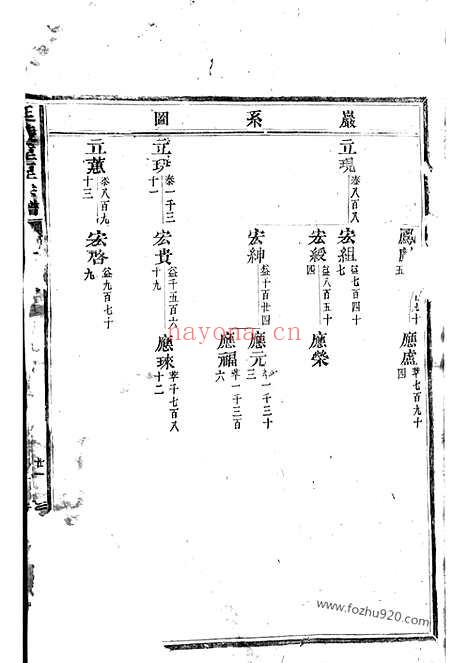 巖系圖
應盧 莘七百九十四
立現 泰八百八
宏組 益七百四十七
宏綬 益八百五十四
應榮
宏紳 益千百廿四
應元 莘一千三十三
應福 莘一千三百六
立玬 泰一千三十一
宏貴 益千五百六十九
應琜 莘千七百八十二
立蕙 泰八百九十三
宏啓 益九百七十九
廿一
nayona.cn
www.fozhu920.com